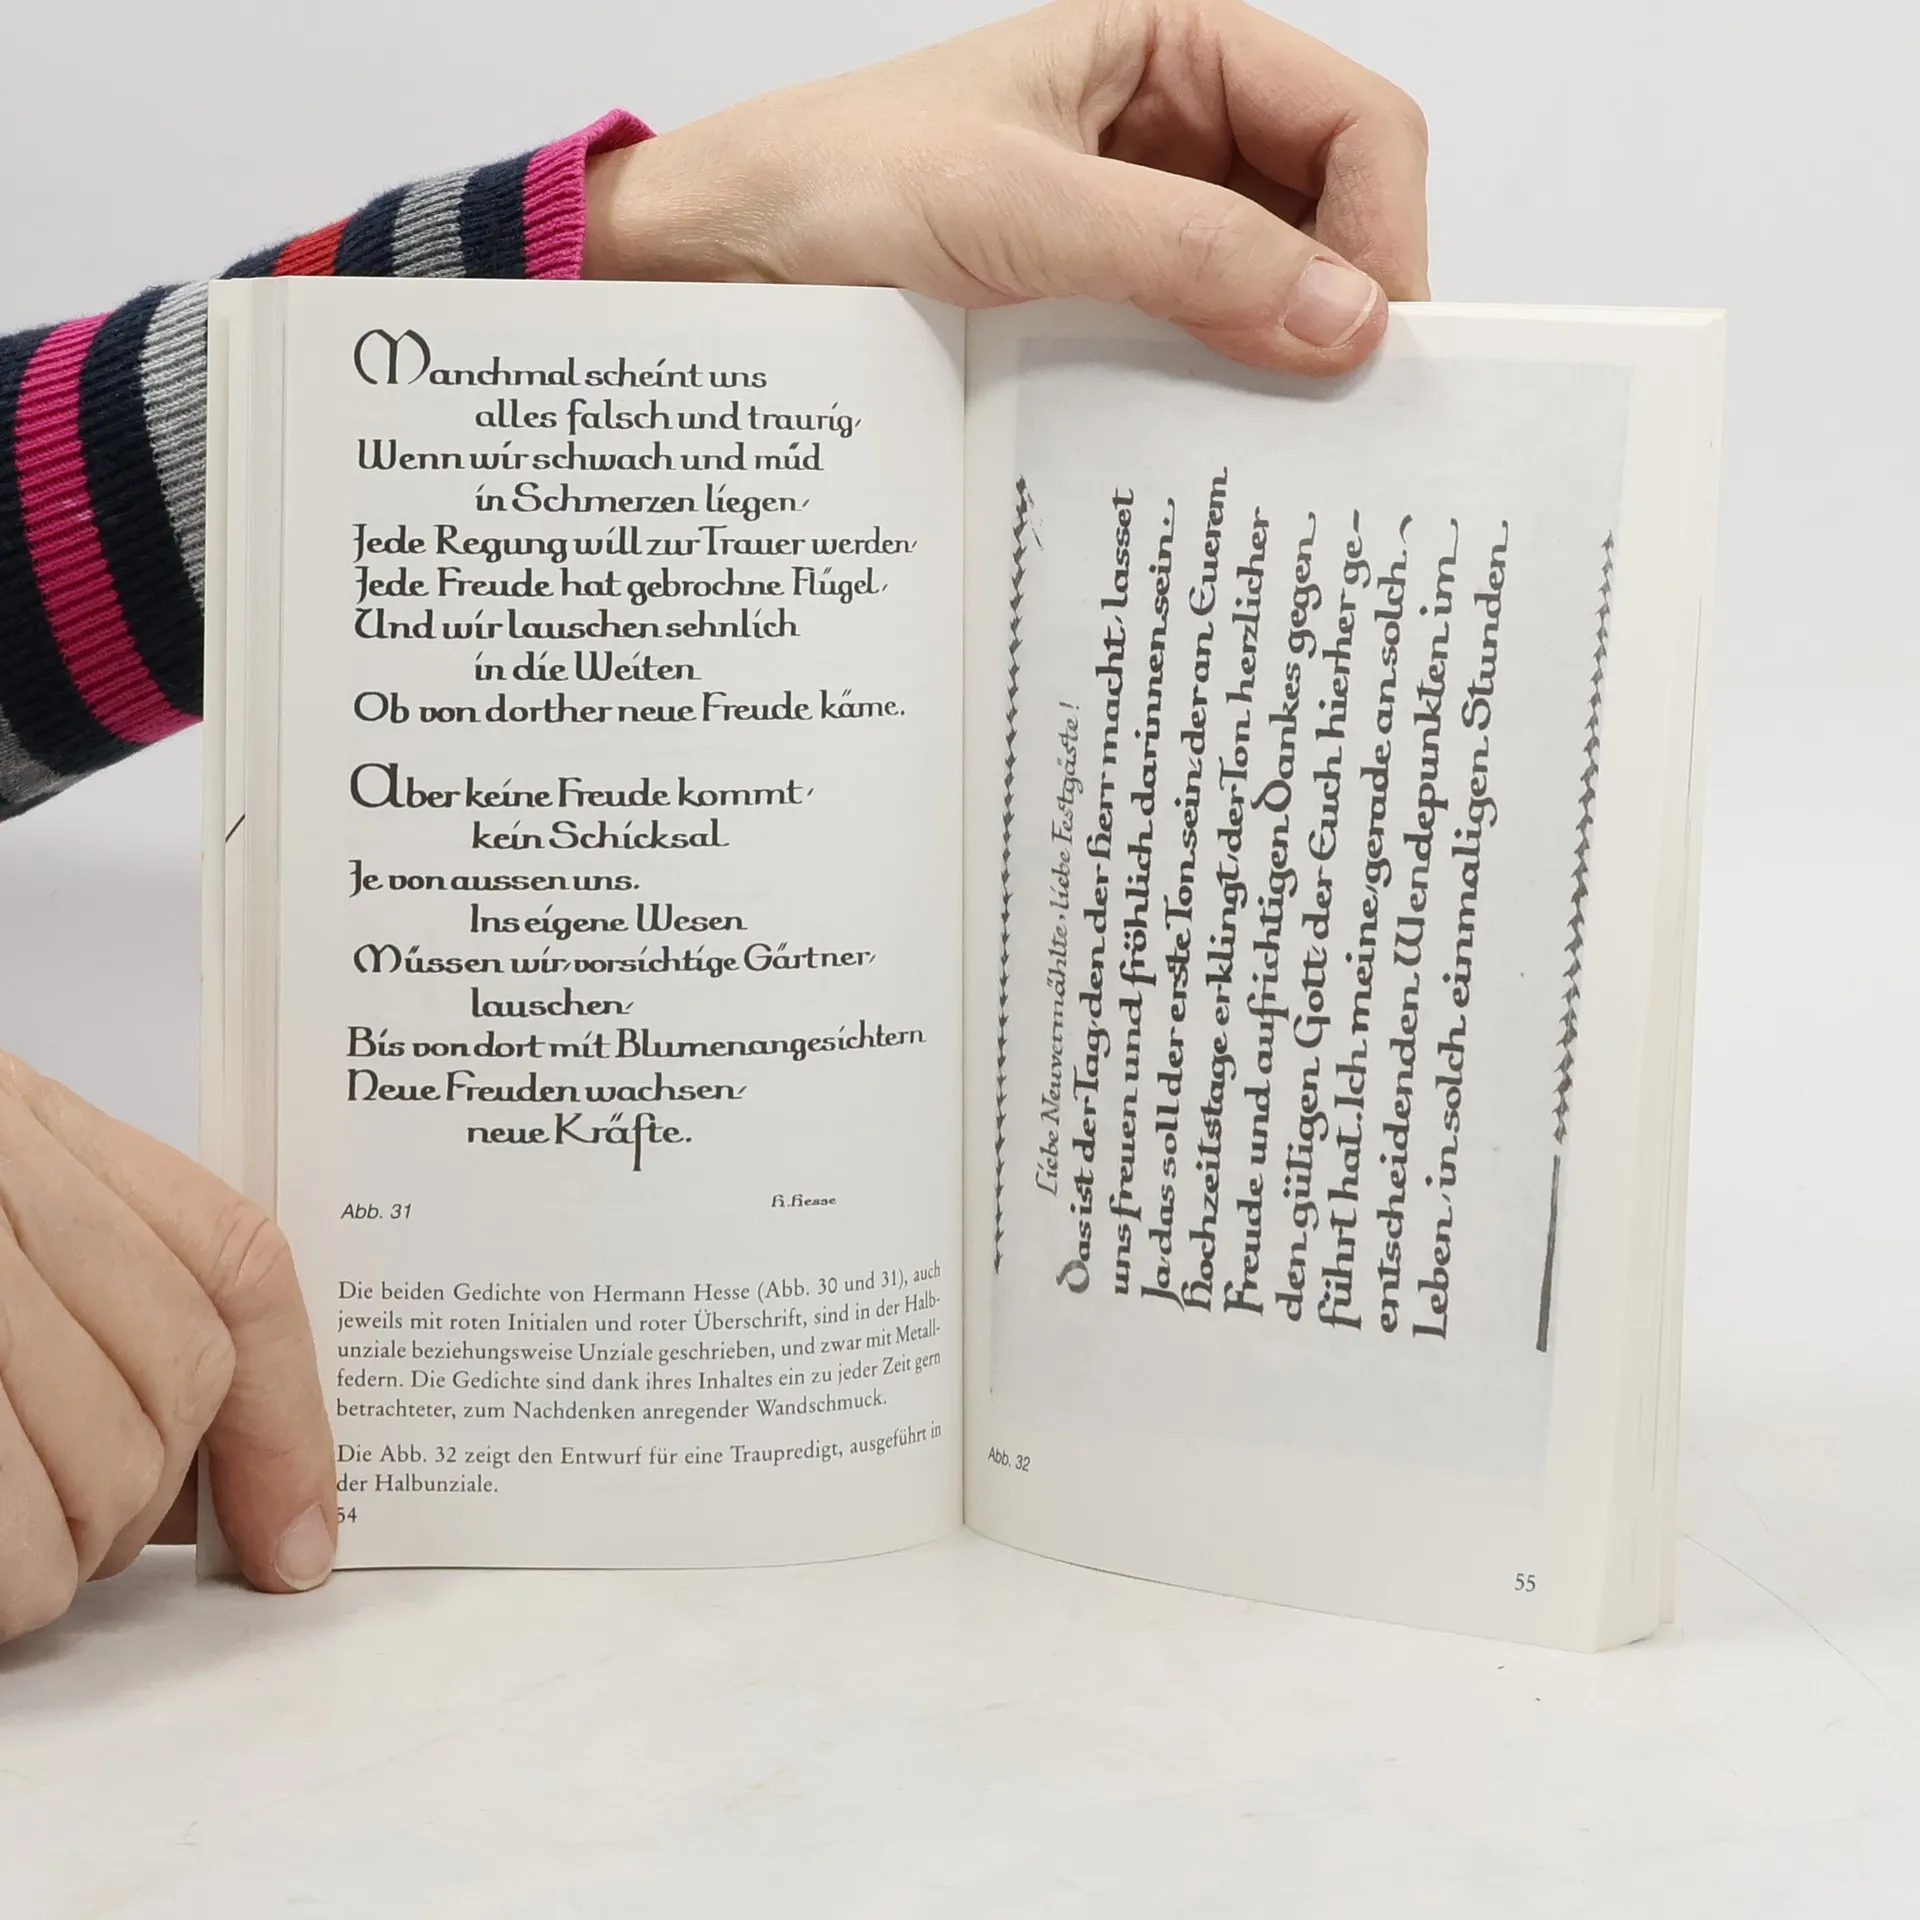 Manchmal scheint uns
alles falsch und traurig,
Wenn wir schwach und müd
in Schmerzen liegen,
Jede Regung will zur Trauer werden,
Jede Freude hat gebrochne Flügel,
Und wir lauschen sehnlich
in die Weiten
Ob von dorther neue Freude käme.
Aber keine Freude kommt,
kein Schicksal
Je von aussen uns.
Ins eigene Wesen
Müssen wir, vorsichtige Gärtner,
lauschen,
Bis von dort mit Blumenangesichtern
Neue Freuden wachsen,
neue Kräfte.
H. Hesse
Abb. 31
Die beiden Gedichte von Hermann Hesse (Abb. 30 und 31), auch
jeweils mit roten Initialen und roter Überschrift, sind in der Halb-
unziale beziehungsweise Unziale geschrieben, und zwar mit Metall-
federn. Die Gedichte sind dank ihres Inhaltes ein zu jeder Zeit gern
betrachteter, zum Nachdenken anregender Wandschmuck.
Die Abb. 32 zeigt den Entwurf für eine Traupredigt, ausgeführt in
der Halbunziale.
54
Liebe Neuvermählte, liebe Festgäste!
Das ist der Tag, den der Herr macht, lasset
uns freuen und fröhlich darinnen sein..
Ja, das soll der erste Ton sein, der an Euerem
Hochzeitstage erklingt, der Ton herzlicher
Freude und aufrichtigen Dankes gegen
den gütigen Gott der Euch hierher ge-
führt hat. Ich meine, gerade an solch
entscheidenden Wendepunkten im
Leben, in solch einmaligen Stunden
Abb. 32
55